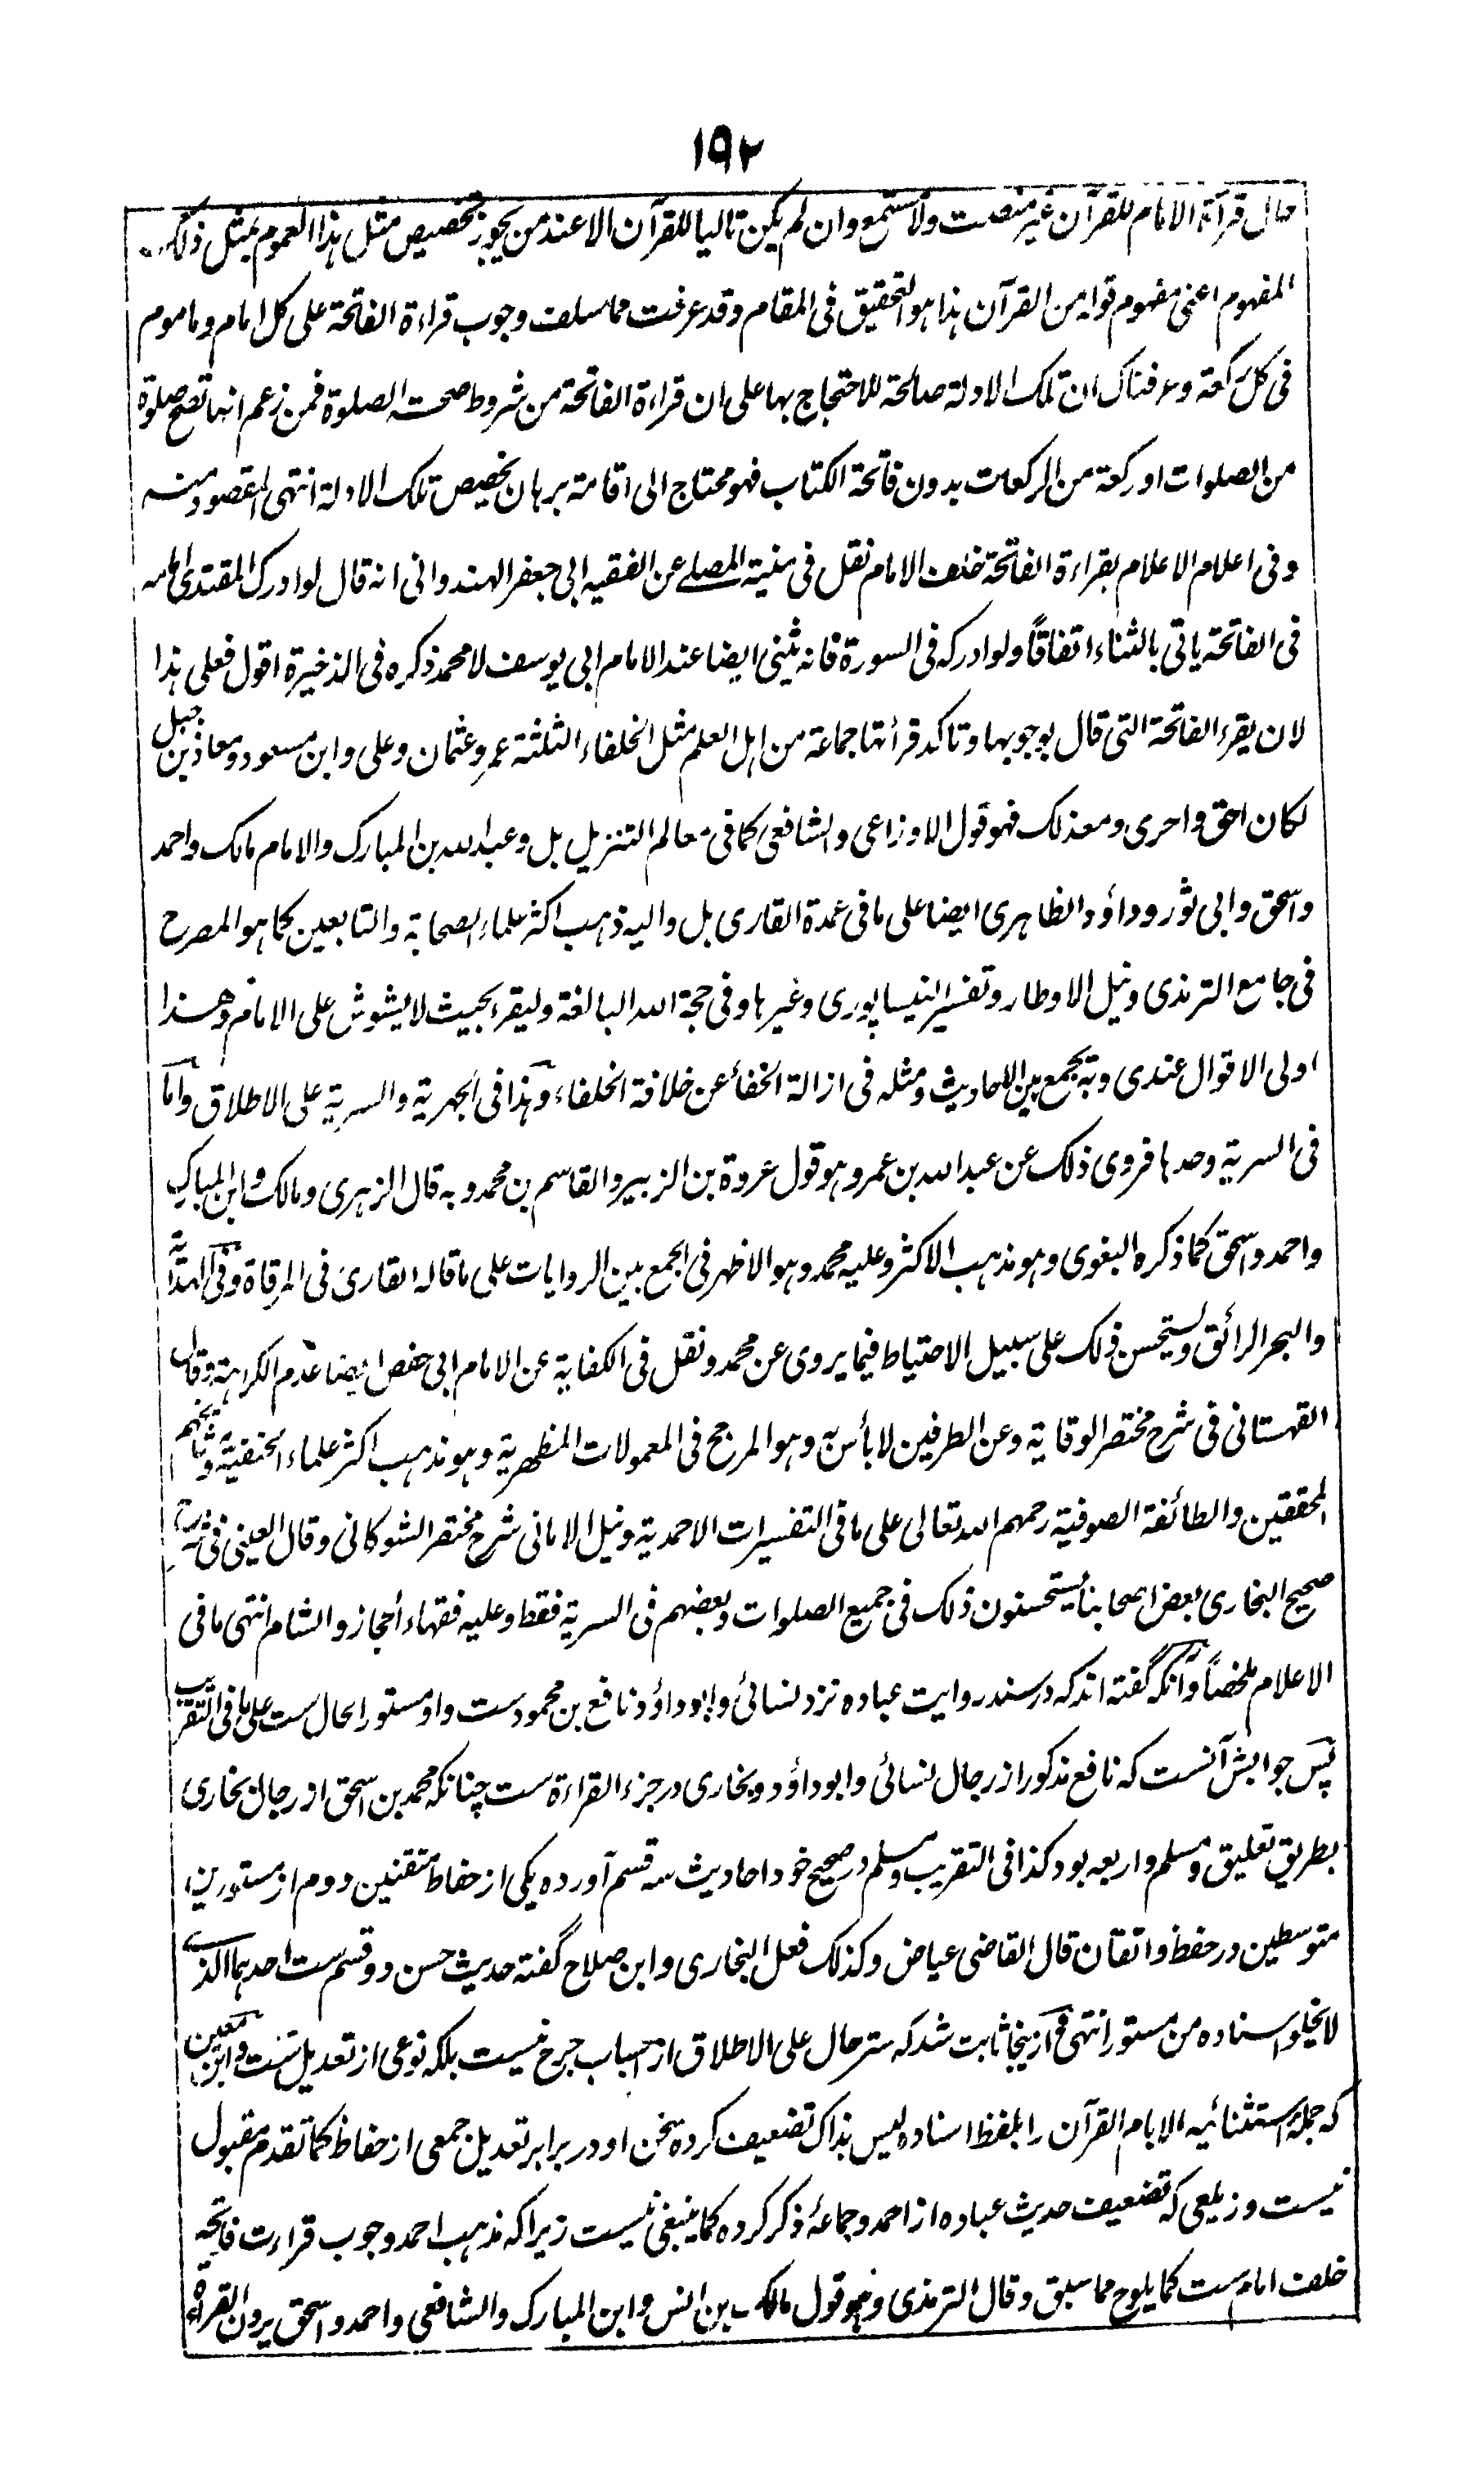 ۱۹۲
حال قرآة الامام للقرآن غیر منصت ولا مستمع وان لم یکن تالیا للقرآن الا عند من یجوز تخصیص مثل ہذا العموم بمثل ذلک
المفهوم اعنی مفهوم قوله من القرآن ہذا ہو التحقیق فی المقام وقد عرفت مما سلف وجوب قراءة الفاتحة علی کل امام وماموم
فی کل رکعة وعرفناک ان تلک الادلة صالحة للاحتجاج بہا علی ان قراءة الفاتحة من شروط صحت الصلوة فمن زعم انہا تصح صلوة
من الصلوات او رکعة من الرکعات بدون فاتحة الکتاب فهو محتاج الی اقامة برہان یخصیص تلک الادلة انتهی المقصود منه
وفی اعلام الاعلام بقراءة الفاتحة خلف الامام نقل فی منیة المصلے عن الفقیه ابی جعفر الہندوانی انه قال لو ادرک المقتدی امامه
فی الفاتحة یاتی بالثناء اتفاقاً ولو ادرکه فی السورة فانه یثنی ایضا عند الامام ابی یوسف لا محمد ذکره فی الذخیرة اقول فعلی ہذا
لان یقرء الفاتحة التی قال بوجوبہا وتاکد قرأتہا جماعة من اہل العلم مثل الخلفاء الثلثة عمر وعثمان وعلی وابن مسعود ومعاذ بن جبل
لکان احق واحری ومعذلک فهو قول الاوزاعی والشافعی کما فی معالم التنزیل بل وعبدالله بن المبارک والامام مالک واحمد
واسحق وابی ثور وداؤد الظاہری ایضا علی ما فی عمدة القاری بل والیه ذہب اکثر علماء الصحابة والتابعین کما ہو المصرح
فی جامع الترمذی ونیل الاوطار وتفسیر النیساپوری وغیرہا وفی حجة الله البالغة ولیقرء بحیث لا یشوش علی الامام وهذا
اولی الاقوال عندی وبه یجمع بین الاحادیث ومثله فی ازالة الخفأ عن خلافة الخلفاء وہذا فی الجہریة والسریة علی الاطلاق واما
فی السریة وحدہا فروی ذلک عن عبدالله بن عمر وہو قول عروة بن الزبیر والقاسم بن محمد وبه قال الزہری ومالک وابن المبارک
واحمد واسحق کما ذکره البغوی وہو مذہب الاکثر وعلیه محمد وہو الاظہر فی الجمع بین الروایات علی ما قاله القاری فی المرقاة وفی الہدایة
والبحر الرائق ویستحسن ذلک علی سبیل الاحتیاط فیما یروی عن محمد ونقل فی الکفایة عن الامام ابی حفص ایضا عدم الکراہة وقال
القہستانی فی شرح مختصر الوقایة وعن الطرفین لا بأس به وہو المرجح فی المعمولات المظہریة وہو مذہب اکثر علماء الحنفیة ومشایخہم
المحققین والطائفة الصوفیة رحمہم الله تعالی علی ما فی التفسیرات الاحمدیة ونیل الامانی شرح مختصر الشوکانی وقال العینی فی شرح
صحیح البخاری بعض اصحابنا یستحسنون ذلک فی جمیع الصلوات وبعضہم فی السریة فقط وعلیه فقہاء الحجاز والشام انتهی ما فی
الاعلام ملخصاً وآنکہ گفته اند که در سند روایت عباده نزد نسائی وابوداؤد نافع بن محمود ست واو مستور الحال ست علی ما فی التقریب
پس جوابش آنست که نافع مذکور از رجال نسائی وابوداؤد وبخاری در جزء القراءة ست چنانکه محمد بن اسحق از رجال بخاری
بطریق تعلیق ومسلم واربعه بود کذا فی التقریب ومسلم در صحیح خود احادیث سه قسم آورده یکی از حفاظ متقنین دوم از مستورین
متوسطین در حفظ واتقان قال القاضی عیاض وکذلک فعل البخاری وابن صلاح گفته حدیث حسن دو قسم ست احدہما الذی
لا یخلو اسناده من مستور انتهی وازینجا ثابت شد که ستر حال علی الاطلاق از اسباب جرح نیست بلکه نوعی از تعدیل ست وابن معین
که جملهٔ استثنائیه الا بام القرآن را بلفظ اسناده لیس بذاک تضعیف کرده سخن او در برابر تعدیل جمعی از حفاظ کما تقدم مقبول
نیست وزیلعی که تضعیف حدیث عباده از احمد وجماعهٔ ذکر کرده کما ینبغی نیست زیرا که مذہب احمد وجوب قراءت فاتحه
خلف امام ست کما یلوح مما سبق وقال الترمذی وهو قول مالک بن انس وابن المبارک والشافعی واحمد واسحق یرون القراءة